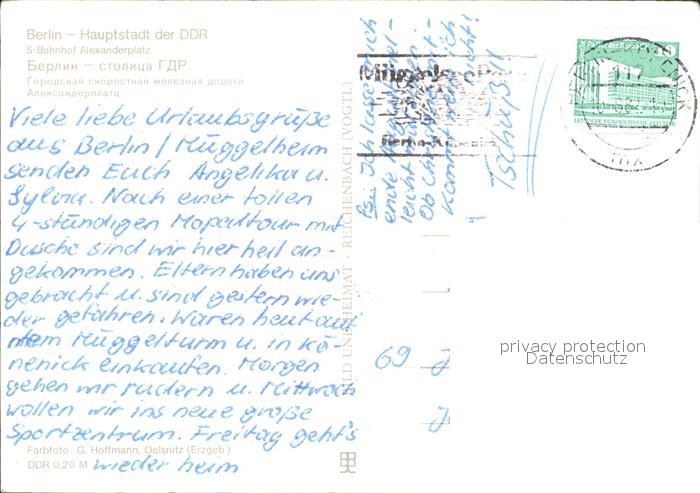 Berlin – Hauptstadt der DDR
S-Bahnhof Alexanderplatz
Берлин — столица ГДР
Городская скоростная железная дорога
Александерплатц
Viele liebe Urlaubsgrüße
aus Berlin / Müggelheim
senden Euch Angelika u.
Sylvia. Nach einer tollen
4-stündigen Mopedtour mit
Dusche sind wir hier heil an-
gekommen. Eltern haben uns
gebracht u. sind gestern wie-
der gefahren. Waren heut auf
dem Müggelturm u. in Kö-
nenick einkaufen. Morgen
gehen wir rudern u. Mittwoch
wollen wir ins neue große
Sportzentrum. Freitag geht's
wieder heim
Farbfoto: G. Hoffmann, Oelsnitz (Erzgeb.)
DDR 0,20 M
BILD UND HEIMAT · REICHENBACH (VOGTL)
Ps: Ich lasse mich
Ob Christa mit-
kommt weiß ich
nicht!
Tschüß!!!
69
privacy protection
Datenschutz